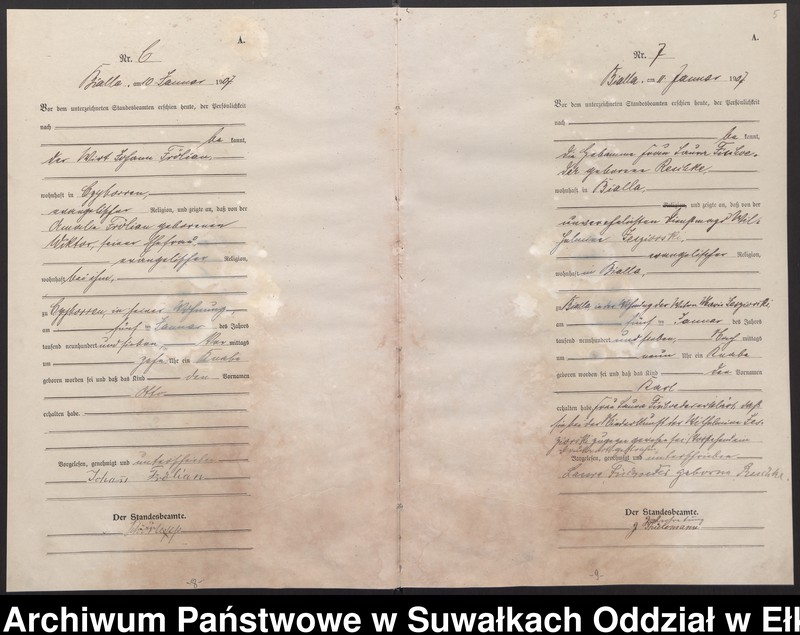 A.
Nr. 6
Bialla, am 10. Januar 1907.
Vor dem unterzeichneten Standesbeamten erschien heute, der Persönlichkeit
nach
be kannt,
der Wirt Johann Frölian
wohnhaft in Czyborren,
evangelischer Religion, und zeigte an, daß von der
Amalie Frölian geborenen
Wiktor, seiner Ehefrau
evangelischer Religion,
wohnhaft bei ihm,
zu Czyborren, in seiner Wohnung
am fünf ten Januar des Jahres
tausend neunhundert und sieben, Vor mittags
um zehn Uhr ein Knabe
geboren worden sei und daß das Kind den Vornamen
Otto
erhalten habe.
Vorgelesen, genehmigt und unterschrieben
Johann Frölian
Der Standesbeamte.
-8-
5
A.
Nr. 7
Bialla, am 11. Januar 1907
Vor dem unterzeichneten Standesbeamten erschien heute, der Persönlichkeit
nach
be kannt,
die Hebamme Frau Laura
der geborene
wohnhaft in Bialla,
Religion, und zeigte an, daß von der
unverehelichten Dienstmagd Wil-
helmine
evangelischer Religion,
wohnhaft in Bialla,
zu Bialla in der Wohnung der Witwe Marie
am fünf ten Januar des Jahres
tausend neunhundert und sieben, Nach mittags
um neun Uhr ein Knabe
geboren worden sei und daß das Kind den Vornamen
Karl
erhalten habe. Frau Laura erklärt, daß
sie bei der Niederkunft der Wilhelmine
zugegen gewesen sei.
Vorgelesen, genehmigt und unterschrieben
Laura geborene
Der Standesbeamte.
-9-
Archiwum Państwowe w Suwałkach Oddział w Eł